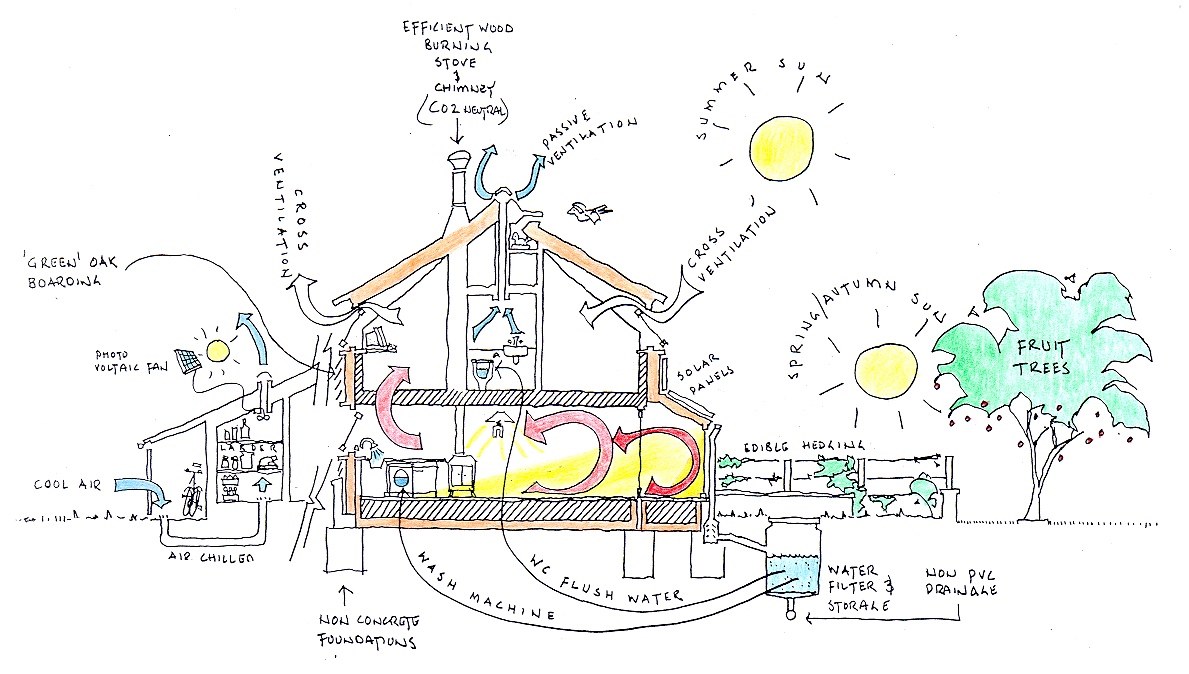 EFFICIENT WOOD
BURNING
STOVE
&
CHIMNEY
(CO2 NEUTRAL)
PASSIVE
VENTILATION
SUMMER SUN
CROSS
VENTILATION
CROSS
VENTILATION
'GREEN' OAK
BOARDING
SPRING/AUTUMN SUN
PHOTO
VOLTAIC FAN
SOLAR
PANELS
FRUIT
TREES
LARDER
EDIBLE HEDGING
COOL AIR
AIR CHILLED
WASH MACHINE
WC FLUSH WATER
WATER
FILTER &
STORAGE
NON PVC
DRAINAGE
NON CONCRETE
FOUNDATIONS